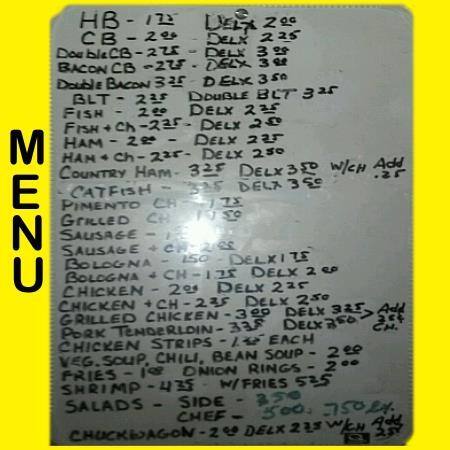 MENU
HB - 1 75 DELX 2 00
CB - 2 00 DELX 2 25
DOUBLE CB - 2 75 - DELX 3 00
BACON CB - 2 75 - DELX 3 00
DOUBLE BACON 3 25 - DELX 3 50
BLT - 2 25 DOUBLE BLT 3 25
FISH - 2 00 DELX 2 25
FISH + CH - 2 25 - DELX 2 50
HAM - 2 00 - DELX 2 25
HAM + CH - 2 25 - DELX 2 50
COUNTRY HAM - 3 25 DELX 3 50 W/CH Add .25
CATFISH - DELX 3 50
PIMENTO CH - 1 75
GRILLED CH 1 50
SAUSAGE - 1
SAUSAGE + CH - 2 00
BOLOGNA - 1 50 - DELX 1 75
BOLOGNA + CH - 1 75 DELX 2 00
CHICKEN - 2 00 DELX 2 25
CHICKEN + CH - 2 25 DELX 2 50
GRILLED CHICKEN - 3 00 DELX 3 25 > Add 25¢ CH.
PORK TENDERLOIN - 3 25 DELX 3 50
CHICKEN STRIPS - EACH
VEG. SOUP, CHILI, BEAN SOUP - 2 00
FRIES - 1 00 ONION RINGS - 2 00
SHRIMP - 4 25 - W/FRIES 5 25
SALADS - SIDE - 2 50
CHEF - 5 00
CHUCKWAGON - 2 00 DELX 2 25 W/CH Add 25¢